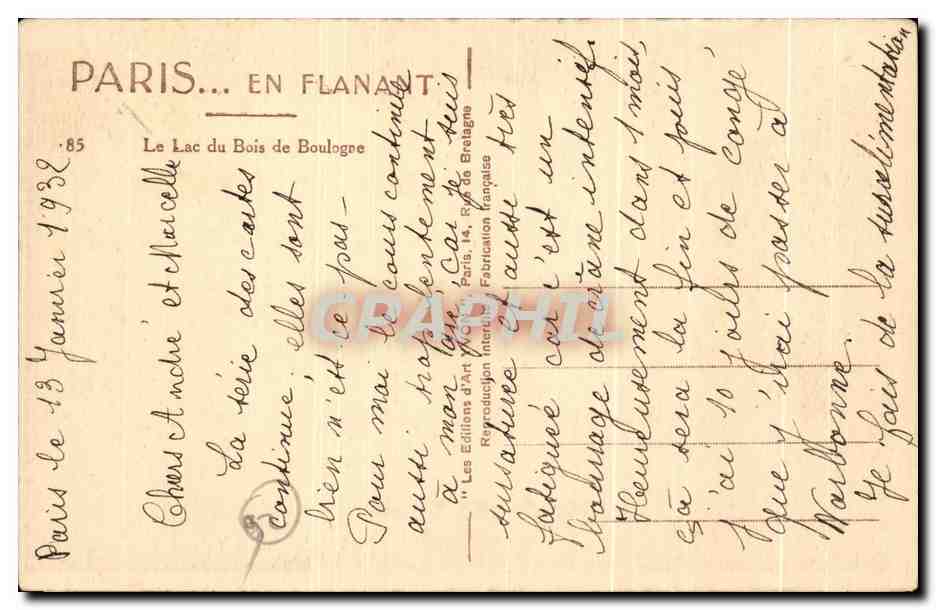 PARIS... EN FLANANT
85 Le Lac du Bois de Boulogne
"Les Editions d'Art YVON", Paris, 14, Rue de Bretagne
Reproduction interdite Fabrication française
CPAPHIL
Paris le 13 Janvier 1932
Chers André et Marcelle
La série des cartes
continue. elles sont
bien n'est ce pas –
Pour moi le cours continue
aussi trop lentement
à mon gré, car je suis
sursaturée et aussi très
fatiguée car c'est un
bourrage de crâne intensif.
Heureusement dans 1 mois,
çà sera la fin et puis
j'ai 10 jours de congé
que j'irai passer à
Narbonne.
Je fais de la suralimentation